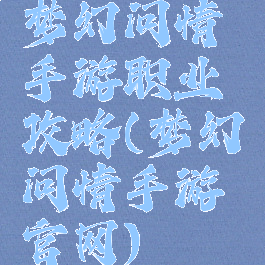 梦幻问情
手游职业
攻略(梦幻
问情手游
官网)